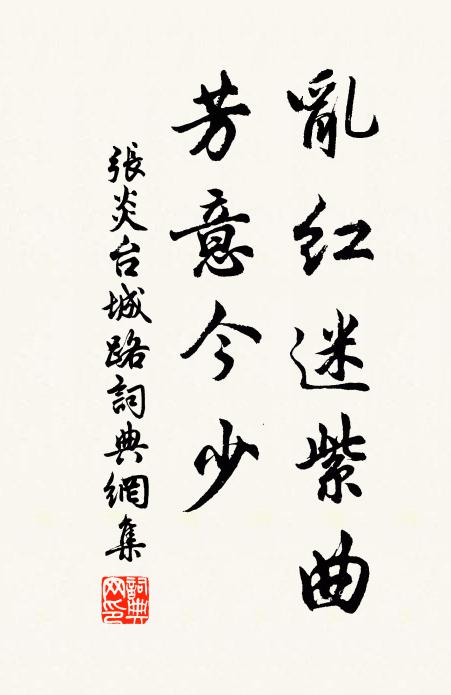 亂红迷紫曲
芳意今少
張炎台城路詞典網集
詞典网印